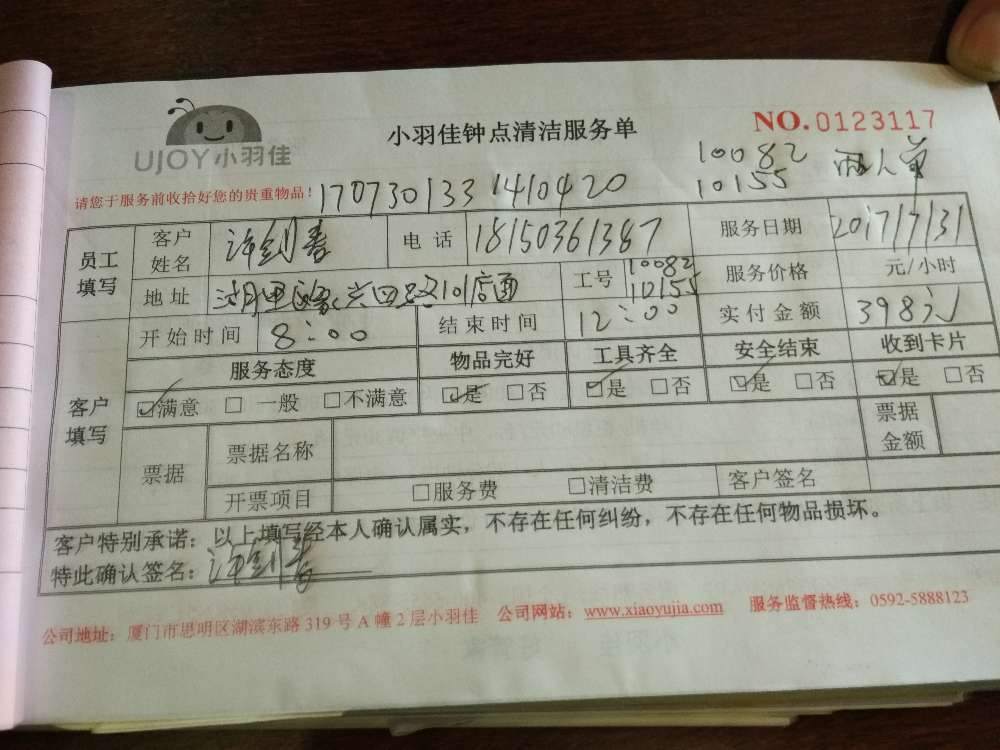 UJOY小羽佳
小羽佳钟点清洁服务单
NO.0123117
10082
10155 两人单
请您于服务前收拾好您的贵重物品！170730133 1410420
员工填写 客户姓名 许剑春 电话 18150361387 服务日期 2017/7/31
地址 四 101店面 工号 10082 10155 服务价格 元/小时
客户填写 开始时间 8:00 结束时间 12:00 实付金额 398元
服务态度 物品完好 工具齐全 安全结束 收到卡片
☑满意 □一般 □不满意 ☑是 □否 ☑是 □否 ☑是 □否 ☑是 □否
票据 票据名称 票据金额
开票项目 □服务费 □清洁费 客户签名
客户特别承诺：以上填写经本人确认属实，不存在任何纠纷，不存在任何物品损坏。
特此确认签名：许剑春
公司地址：厦门市思明区湖滨东路 319 号 A 幢 2 层小羽佳 公司网站：www.xiaoyujia.com 服务监督热线：0592-5888123